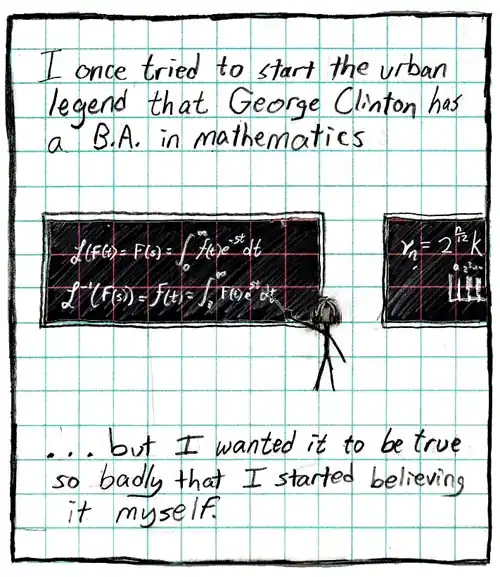 I once tried to start the urban
legend that George Clinton has
a B.A. in mathematics
ℒ(F(t) = F(s) = ∫₀^∞ f(t)e^-st dt
ℒ⁻¹(F(s)) = f(t) = ∫₂^∞ F(t)e^st dt
γₙ = 2^(n/12) k
....but I wanted it to be true
so badly that I started believing
it myself.